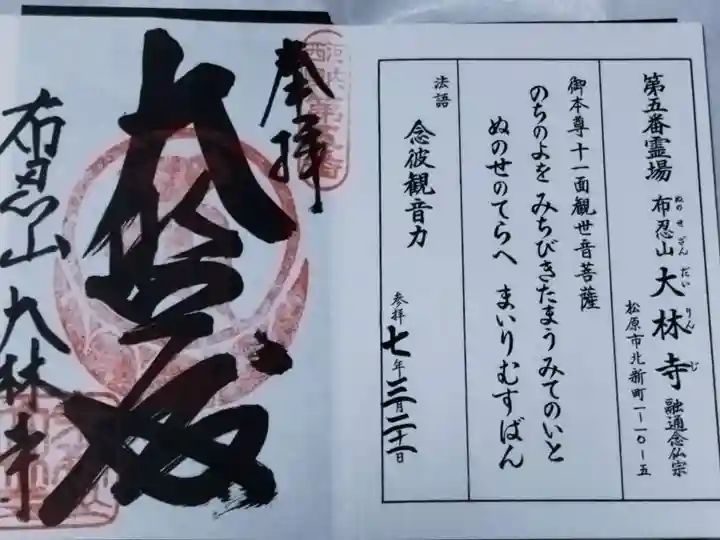 第五番霊場 布忍山 大林寺 融通念仏宗
ぬのせざん だいりんじ
松原市北新町一ー一〇ー五
御本尊十一面観世音菩薩
のちのよを みちびきたまう みてのいと
ぬのせのてらへ まいりむすばん
法語
念彼観音力
参拝 七年三月二十一日
奉拝
河内西国
第五番
大悲殿
布忍山 大林寺